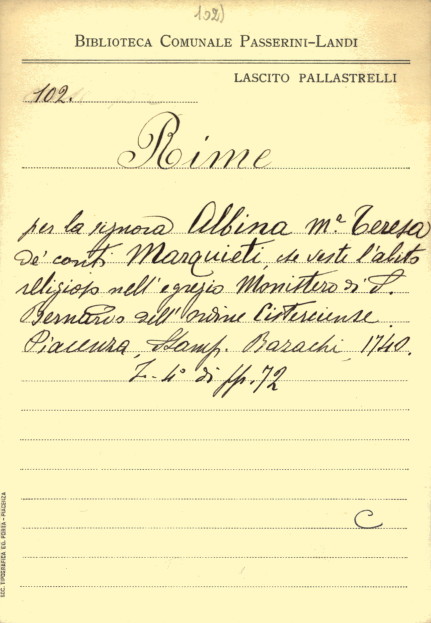 102)
BIBLIOTECA COMUNALE PASSERINI-LANDI
LASCITO PALLASTRELLI
102.
Rime
per la signora Albina Mª Teresa
de' conti Marquieti, che veste l'abito
religioso nell' egregio Monistero di S.
Bernardo dell' ordine Cisterciense.
Piacenza, Stamp. Bazachi, 1740.
4° di pp. 72
C
SOC. TIPOGRAFICA PIACENZA